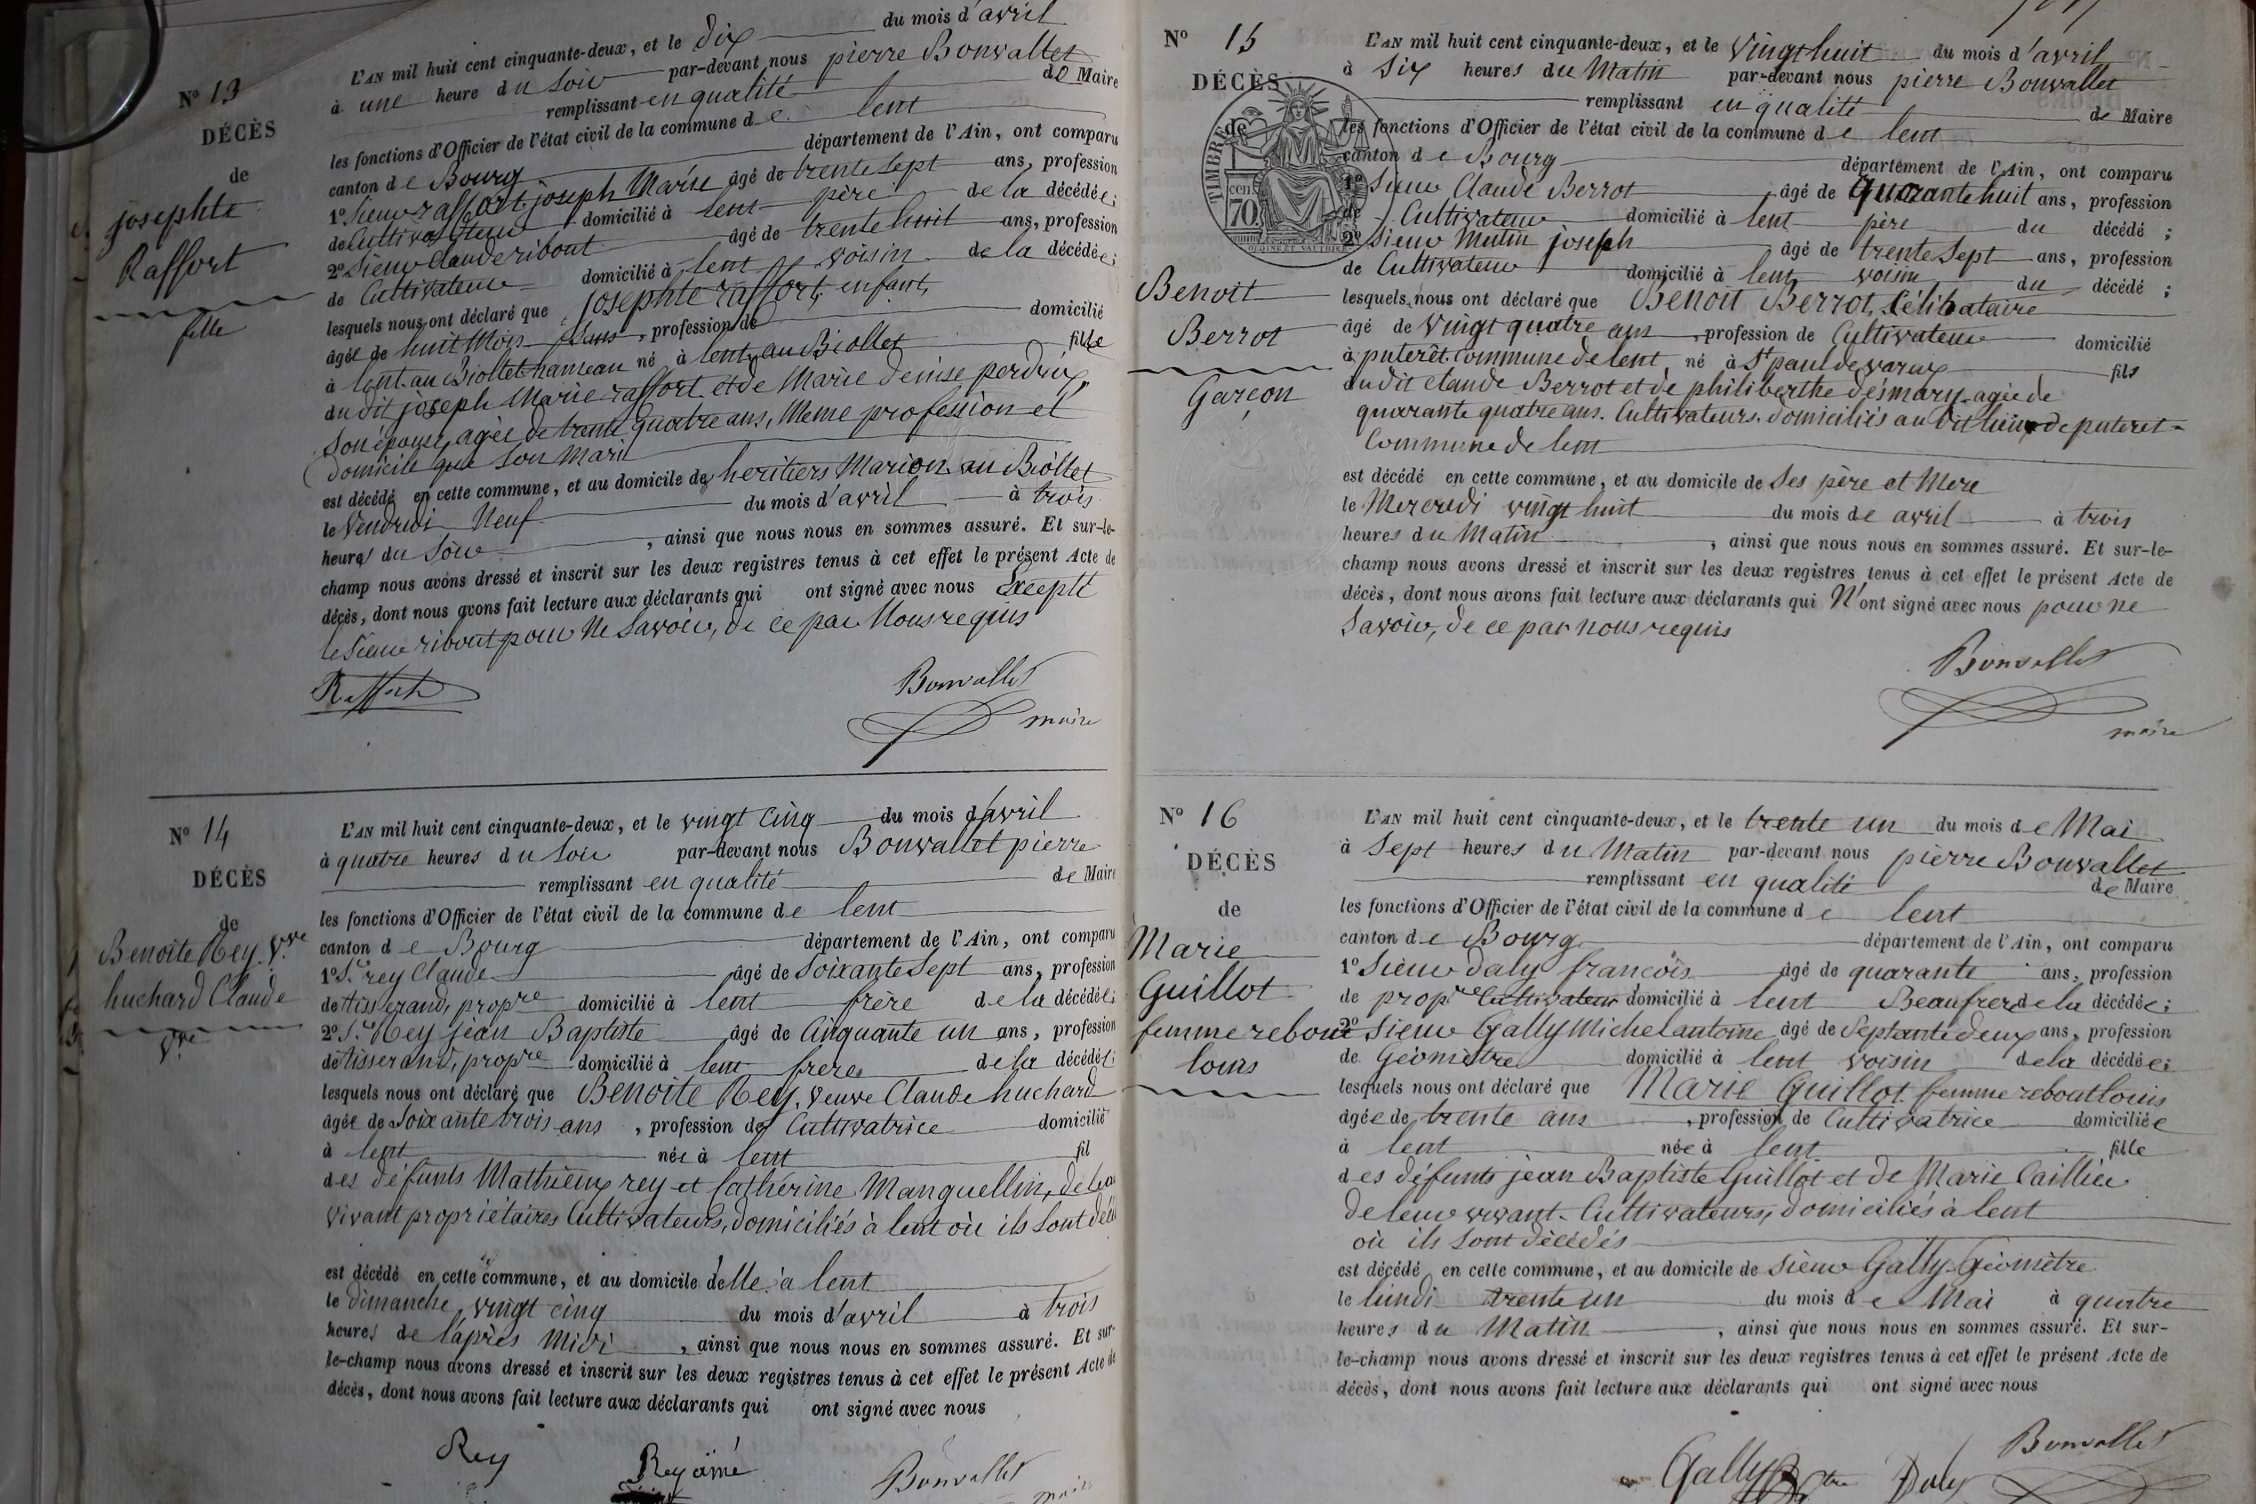 N° 13
DÉCÈS
de
josephte
Raffort
fille
L'AN mil huit cent cinquante-deux, et le dix du mois d'avril
à une heure du Soir par-devant nous pierre Bonvallet
remplissant en qualité de Maire
les fonctions d'Officier de l'état civil de la commune de lent
canton de Bourg département de l'Ain, ont comparu
1° Sieur raffort joseph Marie âgé de trente sept ans, profession
de Cultivateur domicilié à lent père de la décédée;
2° Sieur Claude ribout âgé de trente huit ans, profession
de Cultivateur domicilié à lent voisin de la décédée;
lesquels nous ont déclaré que josephte raffort, enfant,
âgée de huit Mois Sans, profession de domicilié
à lent au Biollet hameau né à lent au Biollet fille
du dit joseph Marie raffort et de Marie denise perdrix,
Son épouse, agée de trente quatre ans, Meme profession et
domicile que Son Mari
est décédé en cette commune, et au domicile des heritiers Marion au Biollet
le Vendredi Neuf du mois d'avril à trois
heures du Soir, ainsi que nous nous en sommes assuré. Et sur-le-
champ nous avons dressé et inscrit sur les deux registres tenus à cet effet le présent Acte de
décès, dont nous avons fait lecture aux déclarants qui ont signé avec nous Excepté
le Sieur ribout pour Ne Savoir, de ce par Nous requis
Raffort
Bonvallet
maire
N° 14
DÉCÈS
de
Benoite Rey Vve
huchard Claude
Vve
L'AN mil huit cent cinquante-deux, et le vingt cinq du mois d'avril
à quatre heures du Soir par-devant nous Bonvallet pierre
remplissant en qualité de Maire
les fonctions d'Officier de l'état civil de la commune de lent
canton de Bourg département de l'Ain, ont comparu
1° Sr. rey Claude âgé de Soixante Sept ans, profession
de tisserand, propre domicilié à lent frère de la décédée;
2° Sr. Rey jean Baptiste âgé de Cinquante un ans, profession
de tisserand, propre domicilié à lent frere de la décédée;
lesquels nous ont déclaré que Benoite Rey, veuve Claude huchard
âgée de Soixante trois ans, profession de Cultivatrice domicilié
à lent née à lent fil
des défunts Mathieux rey et Catherine Manquellin, de leur
vivant propriétaires Cultivateurs, domiciliés à lent où ils Sont
est décédé en cette commune, et au domicile d'elle à lent
le dimanche vingt cinq du mois d'avril à trois
heures de l'après Midi, ainsi que nous nous en sommes assuré. Et sur-
le-champ nous avons dressé et inscrit sur les deux registres tenus à cet effet le présent Acte de
décès, dont nous avons fait lecture aux déclarants qui ont signé avec nous
Rey
Rey aîné
Bonvallet
maire
N° 15
DÉCÈS
de
TIMBRE
cen
70
Benoit
Berrot
Garçon
L'AN mil huit cent cinquante-deux, et le Vingt huit du mois d'avril
à Six heures du Matin par-devant nous pierre Bonvallet
remplissant en qualité de Maire
les fonctions d'Officier de l'état civil de la commune de lent
canton de Bourg département de l'Ain, ont comparu
1° Sieur Claude Berrot âgé de quarante huit ans, profession
de Cultivateur domicilié à lent père du décédé;
2° Sieur Mutin joseph âgé de trente Sept ans, profession
de Cultivateur domicilié à lent voisin du décédé;
lesquels nous ont déclaré que Benoit Berrot, Célibataire
âgé de Vingt quatre ans, profession de Cultivateur domicilié
à puterêt commune de lent né à St paul de varax fils
du dit Claude Berrot et de philiberthe désmary agée de
quarante quatre ans. Cultivateurs. domiciliés au dit lieu de puteret
Commune de lent
est décédé en cette commune, et au domicile de Ses père et Mere
le Mercredi vingt huit du mois de avril à trois
heures du Matin, ainsi que nous nous en sommes assuré. Et sur-le-
champ nous avons dressé et inscrit sur les deux registres tenus à cet effet le présent Acte de
décès, dont nous avons fait lecture aux déclarants qui N'ont signé avec nous pour ne
Savoir, de ce par nous requis
Bonvallet
maire
N° 16
DÉCÈS
de
Marie
Guillot
femme rebout
louis
L'AN mil huit cent cinquante-deux, et le trente un du mois de Mai
à Sept heures du Matin par-devant nous pierre Bonvallet
remplissant en qualité de Maire
les fonctions d'Officier de l'état civil de la commune de lent
canton de Bourg département de l'Ain, ont comparu
1° Sieur daly françois âgé de quarante ans, profession
de propre Cultivateur domicilié à lent Beaufrere de la décédée;
2° Sieur Gally Michel antoine âgé de Septante deux ans, profession
de Géomètre domicilié à lent voisin de la décédée;
lesquels nous ont déclaré que Marie Guillot femme rebout louis
âgée de trente ans, profession de Cultivatrice domiciliée
à lent née à lent fille
des défunts jean Baptiste Guillot et de Marie Caillièe
de leur vivant Cultivateurs, domiciliés à lent
où ils Sont décédés
est décédé en cette commune, et au domicile de Sieur Gally Géomètre
le lundi trente un du mois de Mai à quatre
heures du Matin, ainsi que nous nous en sommes assuré. Et sur-
le-champ nous avons dressé et inscrit sur les deux registres tenus à cet effet le présent Acte de
décès, dont nous avons fait lecture aux déclarants qui ont signé avec nous
Gally
Daly
Bonvallet